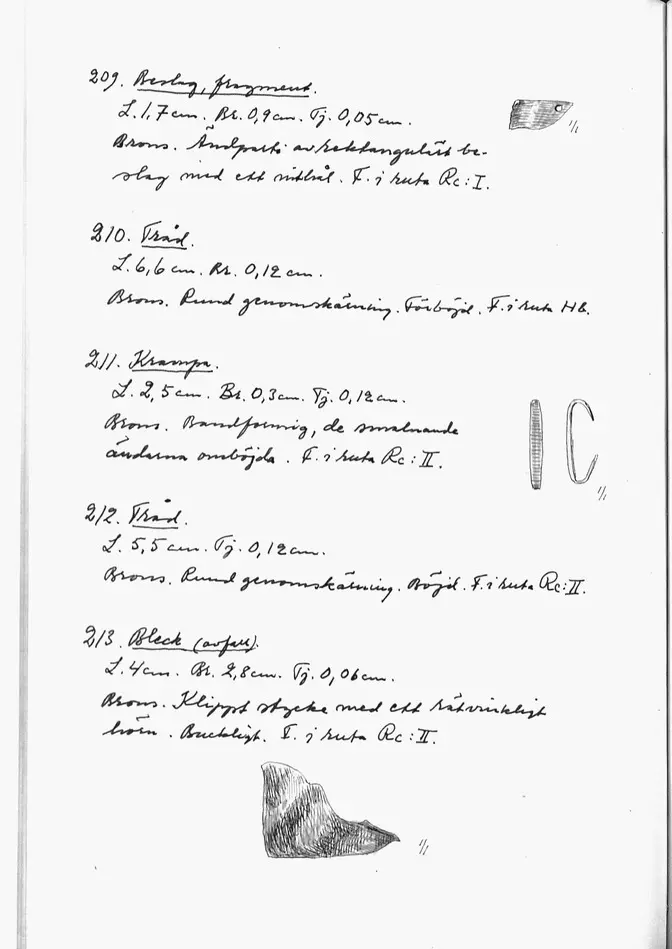 209. Beslag, fragment.
L. 1,7 cm. Br. 0,9 cm. Tj. 0,05 cm.
1/1
Brons. Ändparti av rektangulärt be-
slag med ett nithål. F. i ruta Rc: I.
210. Tråd.
L. 6,6 cm. Br. 0,12 cm.
Brons. Rund genomskärning. Förböjd. F. i ruta Hb.
211. Krampa.
L. 2,5 cm. Br. 0,3 cm. Tj. 0,12 cm.
Brons. Bandformig, de smalnande
ändarna omböjda. F. i ruta Rc: II.
1/1
212. Tråd.
L. 5,5 cm. Tj. 0,12 cm.
Brons. Rund genomskärning. Böjd. F. i ruta Rc: II.
213. Bleck (avfall).
L. 4 cm. Br. 2,8 cm. Tj. 0,06 cm.
Brons. Klippt stycke med ett rätvinkligt
hörn. Buckligt. F. i ruta Rc: II.
1/1